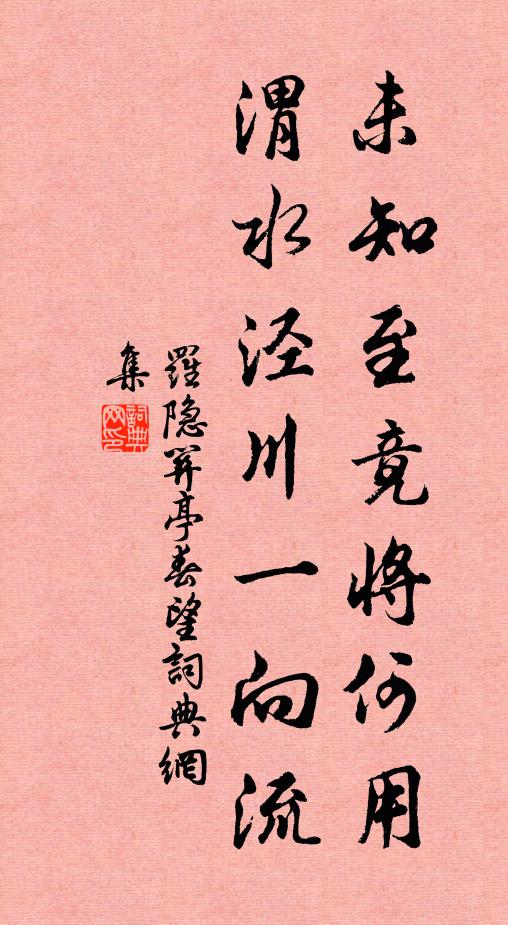 未知至竟將何用
渭水泾川一向流
羅隐亭春望詞典網
集
詞典网印